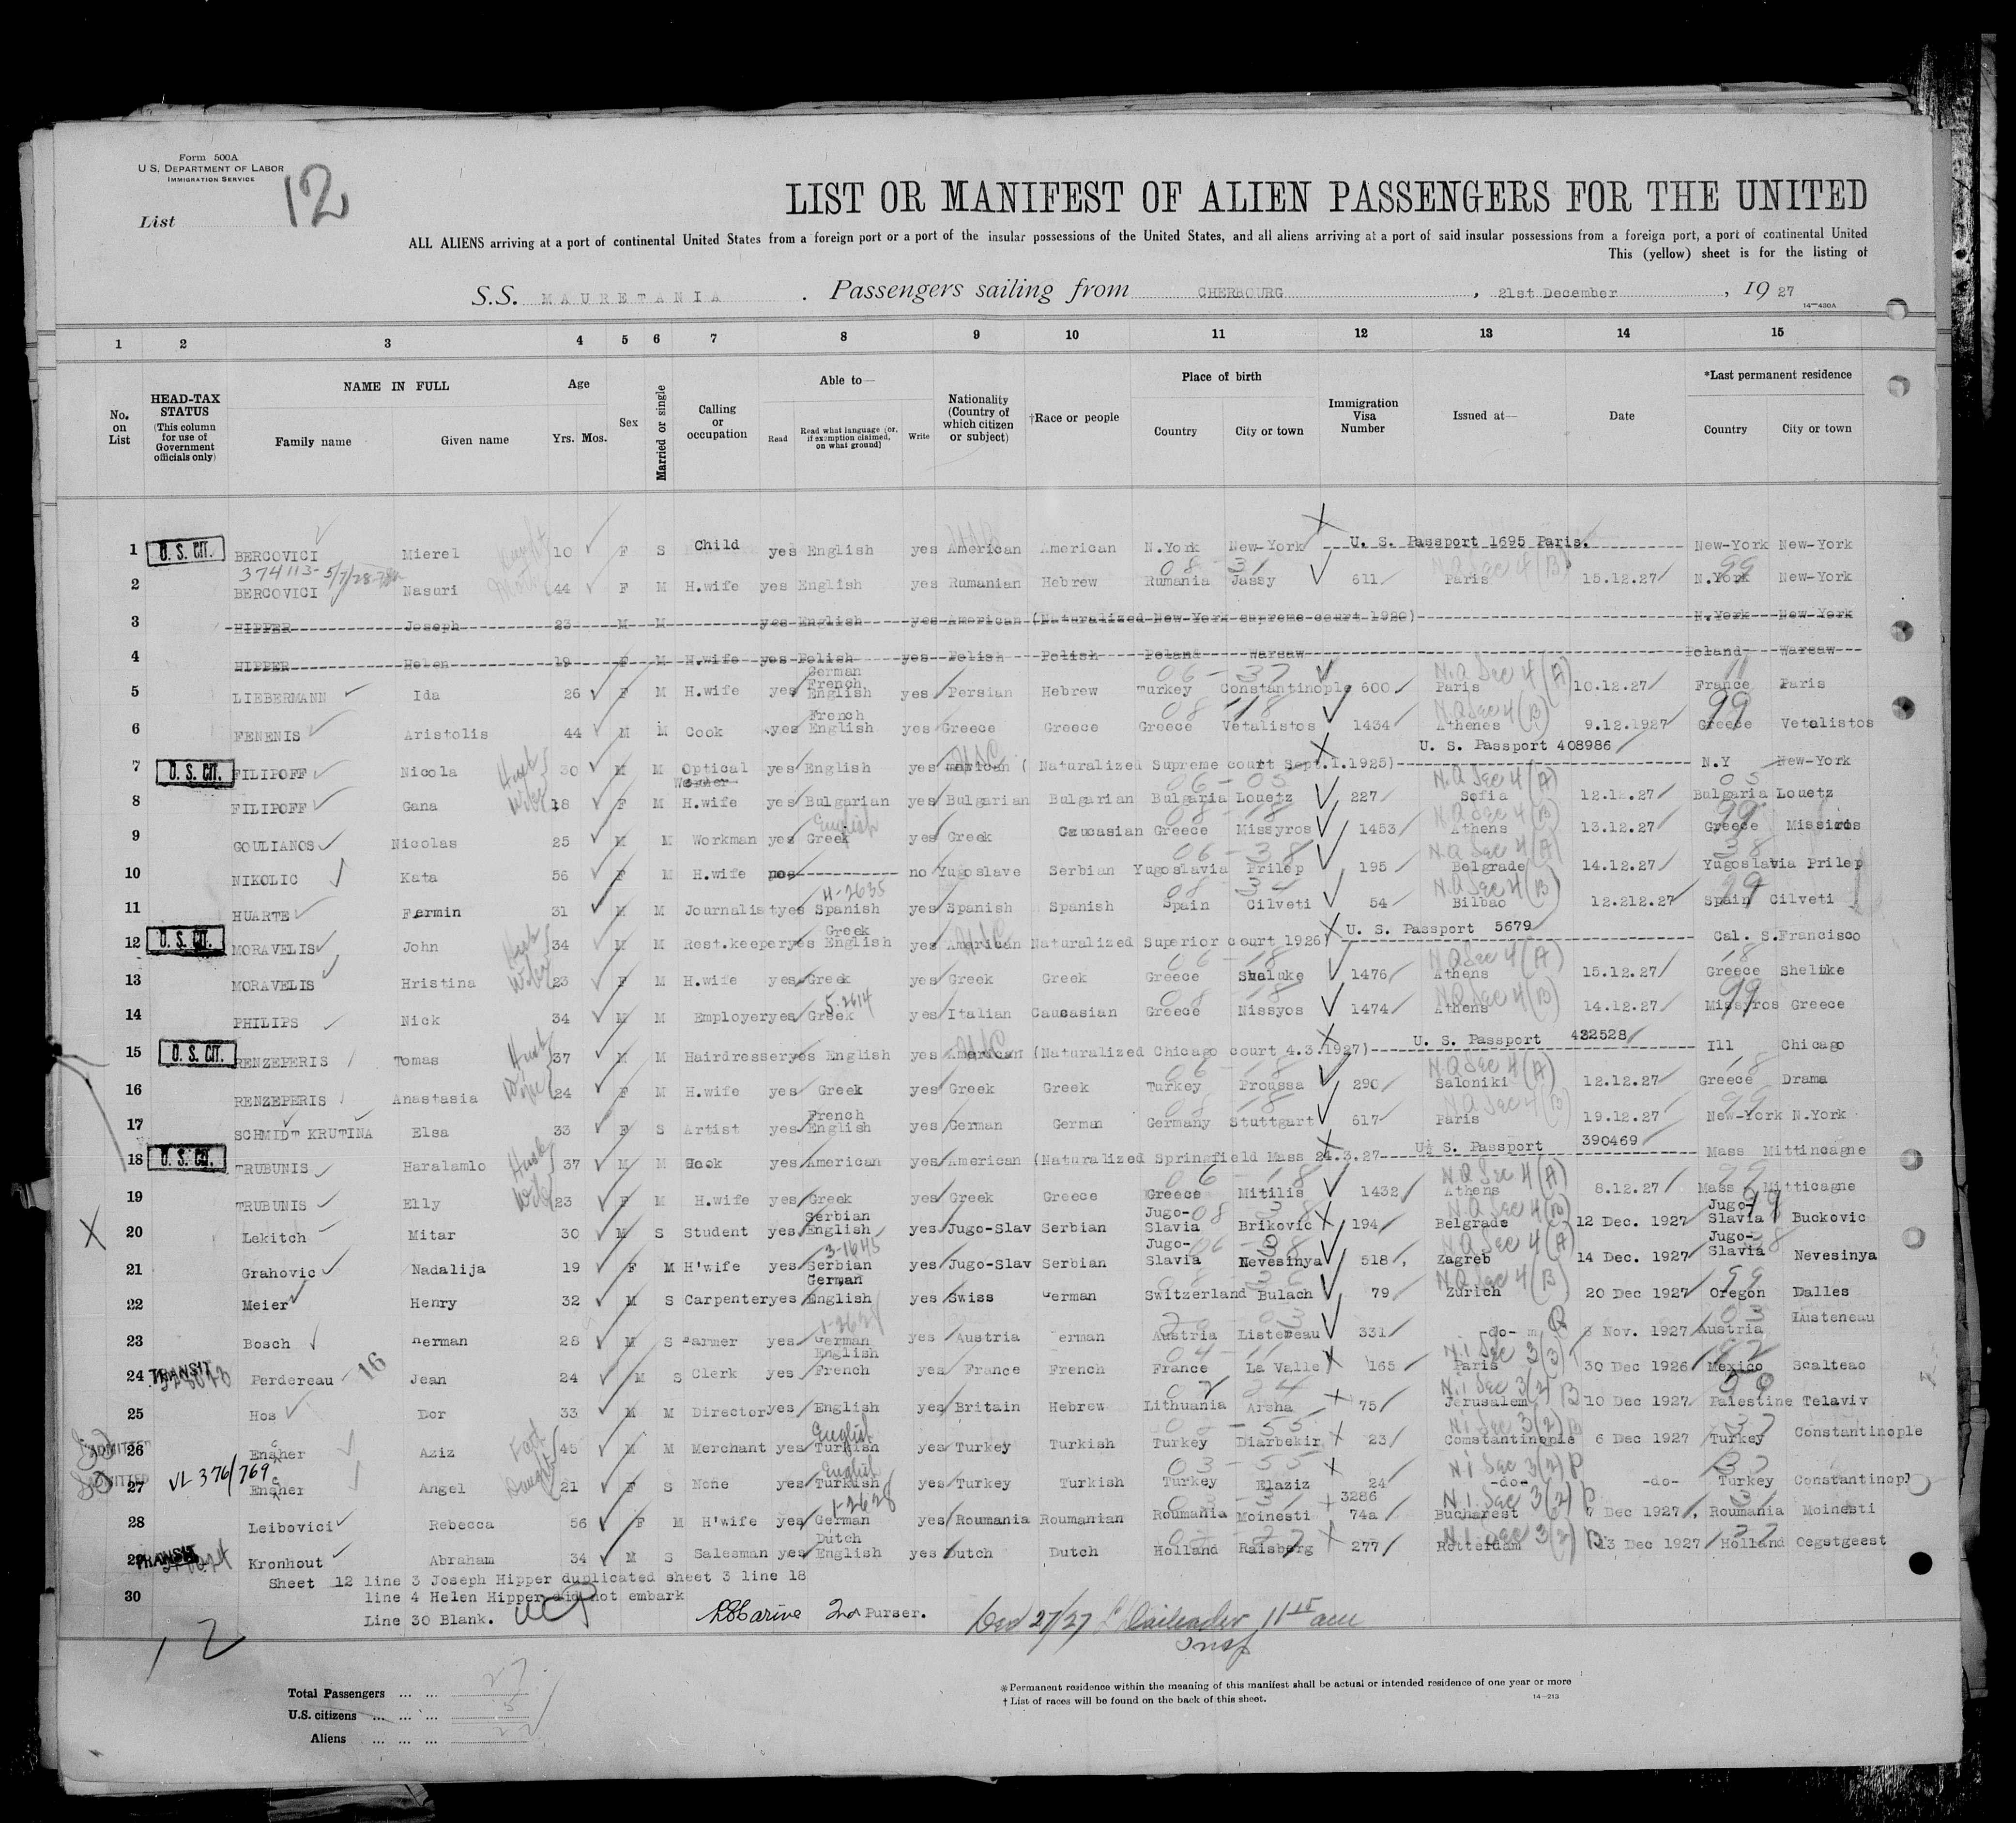 Form 500A
U.S. DEPARTMENT OF LABOR
IMMIGRATION SERVICE
12
List
LIST OR MANIFEST OF ALIEN PASSENGERS FOR THE UNITED
ALL ALIENS arriving at a port of continental United States from a foreign port or a port of the insular possessions of the United States, and all aliens arriving at a port of said insular possessions from a foreign port, a port of continental United
This (yellow) sheet is for the listing of
S.S. MAURETANIA. Passengers sailing from CHERBOURG, 21st December, 1927
14—430A
1 2 3 4 5 6 7 8 9 10 11 12 13 14 15
No. on List
HEAD-TAX STATUS (This column for use of Government officials only)
NAME IN FULL Family name Given name
Age Yrs. Mos.
Sex
Married or single
Calling or occupation
Able to— Read Read what language (or, if exemption claimed, on what ground) Write
Nationality (Country of which citizen or subject)
†Race or people
Place of birth Country City or town
Immigration Visa Number
Issued at—
Date
*Last permanent residence Country City or town
1 U.S. CIT. BERCOVICI Mierel 10 F S Child yes English yes American American N.York New-York U. S. Passport 1695 Paris. New-York New-York
374113-5/7/28
2 BERCOVICI Nasuri 44 F M H.wife yes English yes Rumanian Hebrew Rumania Jassy 611 Paris 15.12.27 N.York New-York
3 HIPPER Joseph 23 M M yes English yes American (Naturalized New-York supreme court 1920) N.York New-York
4 HIPPER Helen 19 F M H.wife yes Polish yes Polish Polish Poland Warsaw Poland Warsaw
5 LIEBERMANN Ida 26 F M H.wife yes German French English yes Persian Hebrew Turkey Constantinople 600 N.Q Sec 4 (A) Paris 10.12.27 France Paris
6 FENENIS Aristolis 44 M M Cook yes French English yes Greece Greece Greece Vetalistos 1434 N.Q Sec 4 (B) Athenes 9.12.1927 Greece Vetalistos
7 U.S. CIT. FILIPOFF Nicola Husb 30 M M Optical Worker yes English yes merican ( Naturalized Supreme court Sept.I.1925) U. S. Passport 408986 N.Y New-York
8 FILIPOFF Gana Wife 18 F M H.wife yes Bulgarian yes Bulgarian Bulgarian Bulgaria Louetz 227 N.Q Sec 4 (A) Sofia 12.12.27 Bulgaria Louetz
9 GOULIANOS Nicolas 25 M M Workman yes English Greek yes Greek Caucasian Greece Missyros 1453 N.Q Sec 4 (B) Athens 13.12.27 Greece Missiros
10 NIKOLIC Kata 56 F M H.wife no no Yugoslave Serbian Yugoslavia Prilep 195 N.Q Sec 4 (A) Belgrade 14.12.27 Yugoslavia Prilep
11 HUARTE Fermin 31 M M Journalist yes Spanish yes Spanish Spanish Spain Cilveti 54 N.Q Sec 4 (B) Bilbao 12.212.27 Spain Cilveti
12 U.S. CIT. MORAVELIS John Husb 34 M M Rest.keeper yes Greek English yes American Naturalized Superior court 1926 U. S. Passport 5679 Cal. S.Francisco
13 MORAVELIS Hristina Wife 23 F M H.wife yes Greek yes Greek Greek Greece Sheluke 1476 N.Q Sec 4 (A) Athens 15.12.27 Greece Shelike
14 PHILIPS Nick 34 M M Employer yes Greek yes Italian Caucasian Greece Nissyos 1474 N.Q Sec 4 (B) Athens 14.12.27 Missyros Greece
15 U.S. CIT. RENZEPERIS Tomas Husb 37 M M Hairdresser yes English yes American (Naturalized Chicago court 4.3.1927) U. S. Passport 432528 Ill Chicago
16 RENZEPERIS Anastasia Wife 24 F M H.wife yes Greek yes Greek Greek Turkey Proussa 290 N.Q Sec 4 (A) Saloniki 12.12.27 Greece Drama
17 SCHMIDT KRUTINA Elsa 33 F S Artist yes French English yes German German Germany Stuttgart 617 N.Q Sec 4 (B) Paris 19.12.27 New-York N.York
18 U.S. CIT. TRUBUNIS Haralamlo Husb 37 M M Cook yes American yes American (Naturalized Springfield Mass 24.3.27 U. S. Passport 390469 Mass Mittincagne
19 TRUBUNIS Elly Wife 23 F M H.wife yes Greek yes Greek Greece Greece Mitilis 1432 N.Q Sec 4 (A) Athens 8.12.27 Mass Mitticagne
20 Lekitch Mitar 30 M S Student yes Serbian English yes Jugo-Slav Serbian Jugo-Slavia Brikovic 194 N.Q Sec 4 (B) Belgrade 12 Dec. 1927 Jugo-Slavia Buckovic
21 Grahovic Nadalija 19 F M H'wife yes Serbian yes Jugo-Slav Serbian Jugo-Slavia Nevesinya 518, N.Q Sec 4 (A) Zagreb 14 Dec. 1927 Jugo-Slavia Nevesinya
22 Meier Henry 32 M S Carpenter yes German English yes Swiss German Switzerland Bulach 79 N.Q Sec 4 (B) Zurich 20 Dec 1927 Oregon Dalles
23 Bosch Herman 28 M S Farmer yes German yes Austria German Austria Listeneau 331 -do- Nov. 1927 Austria Lusteneau
24 TRANSIT Perdereau 16 Jean 24 M S Clerk yes English French yes France French France La Valle 165 N.i Sec 3(3) Paris 30 Dec 1926 Mexico Scalteao
25 Hos Dor 33 M M Director yes English yes Britain Hebrew Lithuania Arsha 75 N.i Sec 3(2) B Jerusalem 10 Dec 1927 Palestine Telaviv
26 ADMITTED Encher Aziz Fath 45 M M Merchant yes English Turkish yes Turkey Turkish Turkey Diarbekir 23 N.i Sec 3(2) B Constantinople 6 Dec 1927 Turkey Constantinople
27 ADMITTED VL 376/769 Encher Angel Daughter 21 F S None yes English Turkish yes Turkey Turkish Turkey Elaziz 24 N.i Sec 3(2) -do- -do- Turkey Constantinopl
28 Leibovici Rebecca 56 F M H'wife yes German yes Roumania Roumanian Roumania Moinesti 3286 74a N.i. Sec 3(2) Bucharest 7 Dec 1927, Roumania Moinesti
29 TRANSIT Kronhout Abraham 34 M S Salesman yes Dutch English yes Dutch Dutch Holland Raisberg 277 N.i Sec 3(2) Rotterdam 13 Dec 1927 Holland Oegstgeest
Sheet 12 line 3 Joseph Hipper duplicated sheet 3 line 18
30 line 4 Helen Hipper did not embark
Line 30 Blank. 2nd Purser. Dec 27/27 11 15 am
Insp
12
Total Passengers ... ... 27
U.S. citizens ... ... ... 5
Aliens ... ... ... 22
*Permanent residence within the meaning of this manifest shall be actual or intended residence of one year or more
† List of races will be found on the back of this sheet. 14—213